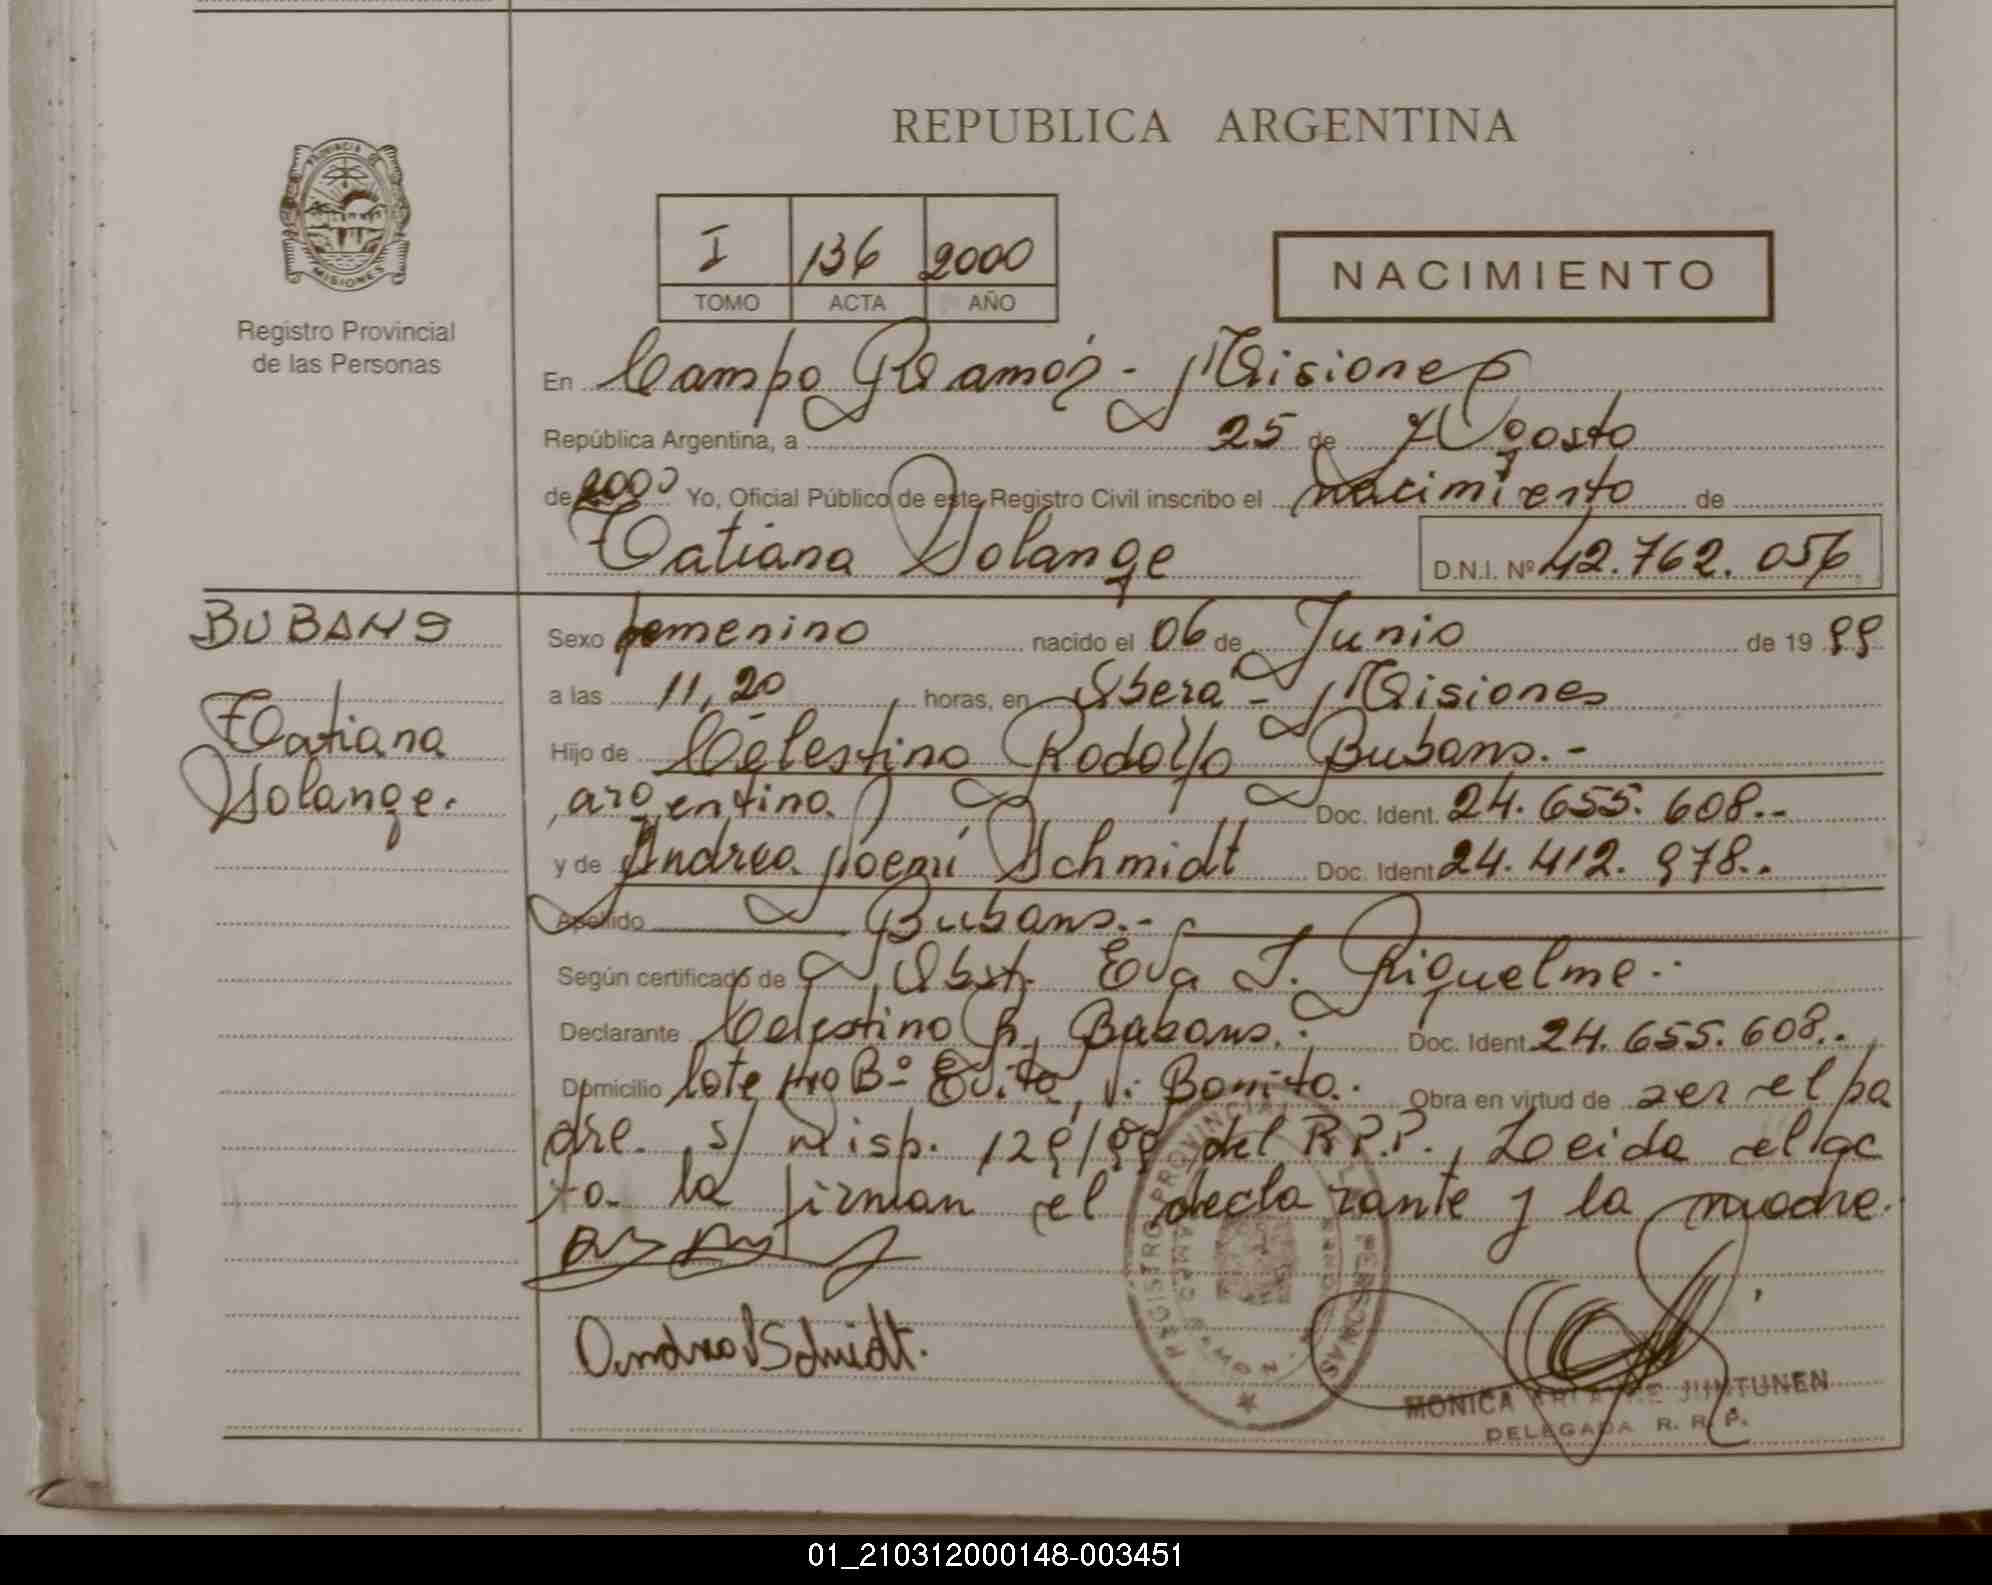 REPUBLICA ARGENTINA
PROVINCIA DE
MISIONES
Registro Provincial
de las Personas
I 136 2000
TOMO ACTA AÑO
NACIMIENTO
En Campo Ramón - Misiones
República Argentina, a 25 de Agosto
de 2000 Yo, Oficial Público de este Registro Civil inscribo el nacimiento de
Tatiana Solange D.N.I. Nº 42.762.056
BUBANS
Tatiana
Solange.
Sexo femenino nacido el 06 de Junio de 19 99
a las 11,20 horas, en Oberá - Misiones
Hijo de Celestino Rodolfo Bubans.-
argentino Doc. Ident. 24.655.608.-
y de Andrea Noemí Schmidt Doc. Ident. 24.412.978.-
Apellido Bubans.-
Según certificado de Obst. Eva J. Riquelme.-
Declarante Celestino R. Bubans.- Doc. Ident. 24.655.608.-
Domicilio lote 140 Bº Evita, V. Bonita. Obra en virtud de ser el pa
dre. s/ Disp. 129/99 del R.P.P., Leida el ac
ta la firman el declarante y la madre.
Andrea Schmidt.
REGISTRO PROVINCIAL PERSONAS
MONICA JUNTUNEN
DELEGADA R. R. P.
01_210312000148-003451